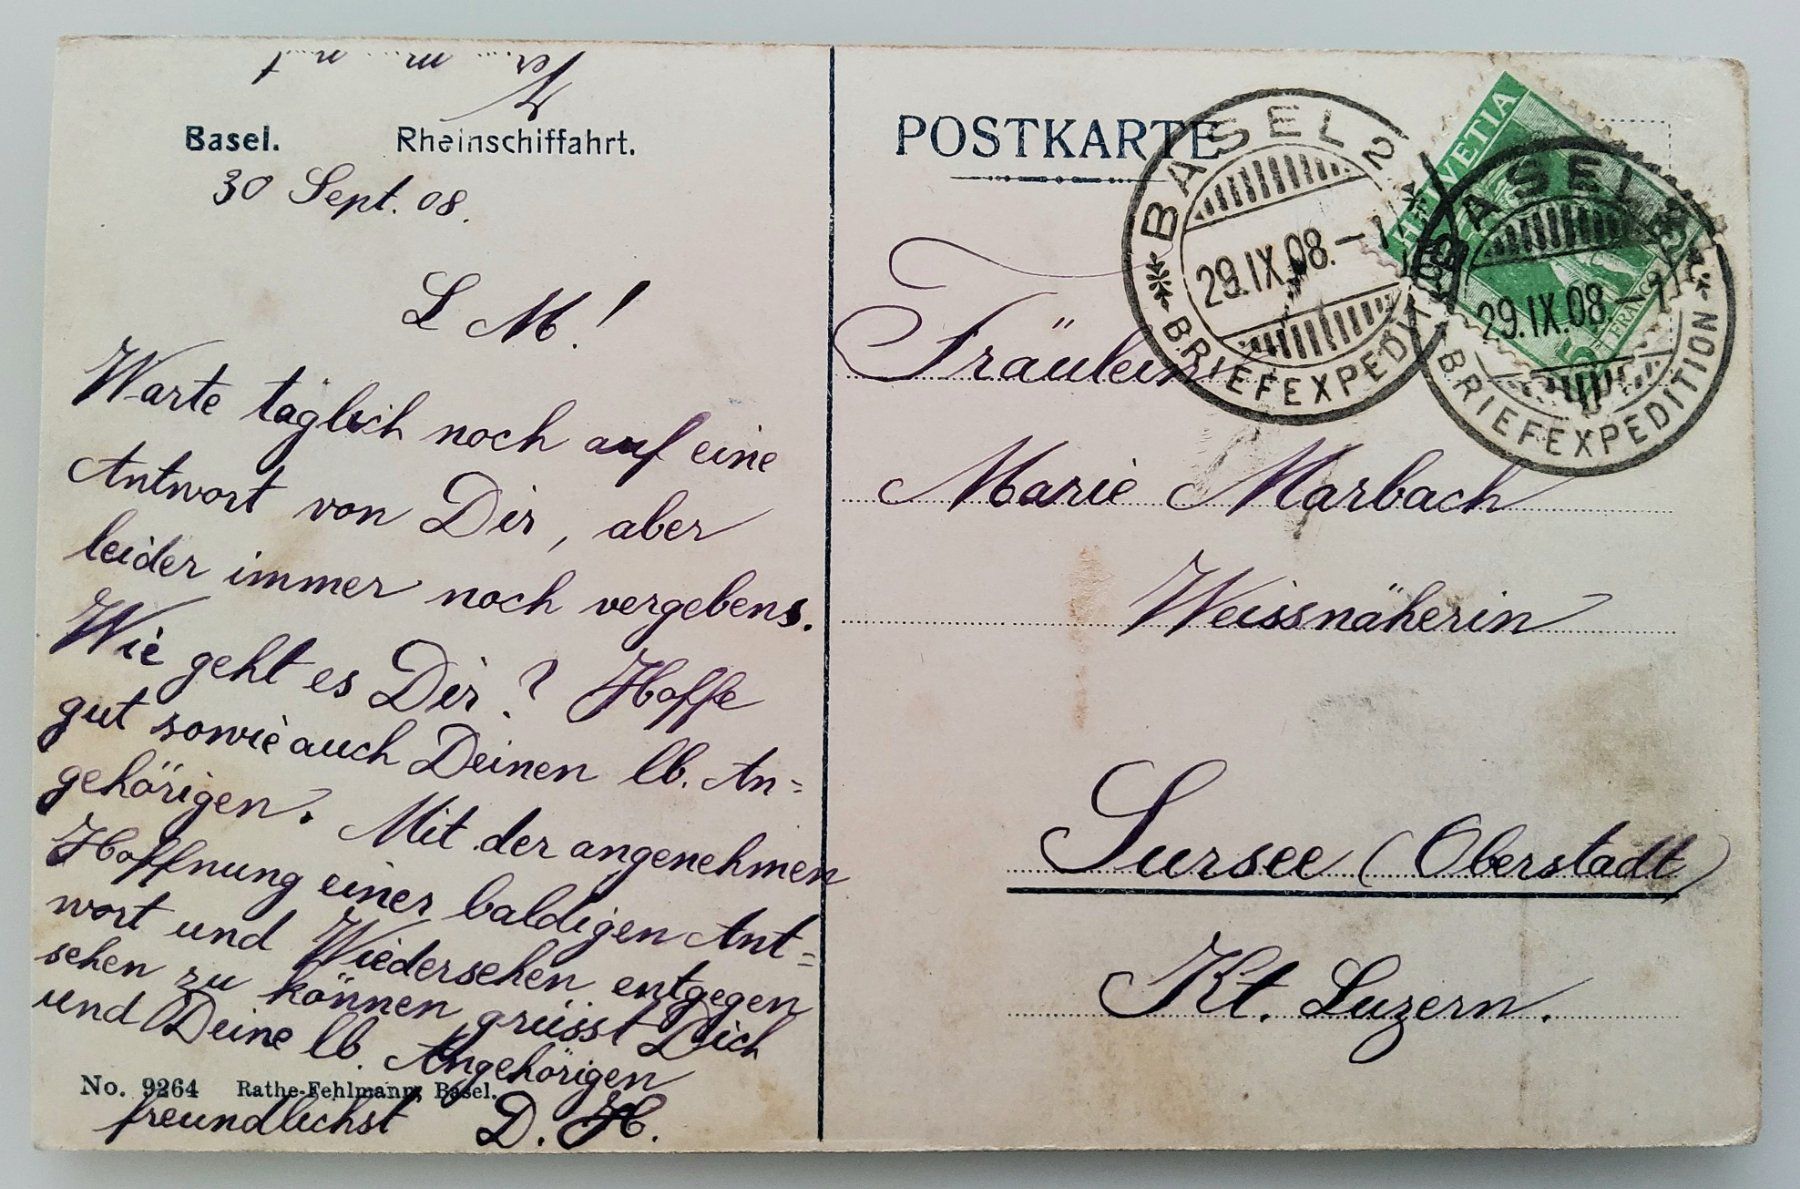 Basel. Rheinschiffahrt.
30 Sept. 08.
L M!
Warte täglich noch auf eine
Antwort von Dir, aber
leider immer noch vergebens.
Wie geht es Dir? Hoffe
gut sowie auch Deinen lb. An=
gehörigen. Mit der angenehmen
Hoffnung einer baldigen Ant=
wort und Wiedersehen entgegen
sehen zu können grüsst Dich
und Deine lb. Angehörigen
No. 9264 Rathe-Fehlmann, Basel.
freundlichst D. H.
POSTKARTE
BASEL 2
29.IX.08.–1
BRIEFEXPEDITION
HELVETIA
5
FRANCO
BASEL 2
29.IX.08.–1
BRIEFEXPEDITION
Fräulein
Marie Marbach
Weissnäherin
Sursee (Oberstadt)
Kt. Luzern.